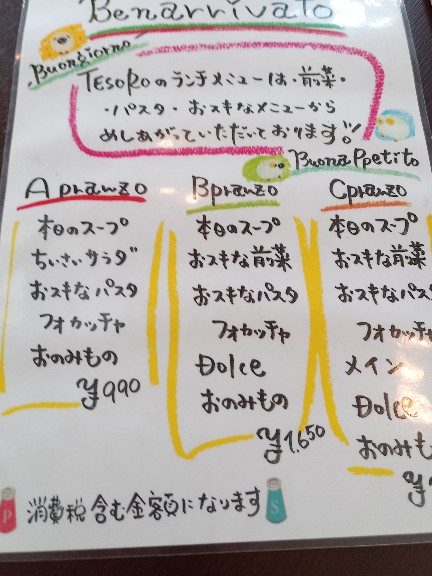 Benarrivato
Buongiorno
TESORoのランチメニューは・前菜・
・パスタ・おスキなメニューから
めしあがっていただいております!!
Buona Ppetito
A pranzo
本日のスープ
ちいさいサラダ
おスキなパスタ
フォカッチャ
おのみもの
¥990
B pranzo
本日のスープ
おスキな前菜
おスキなパスタ
フォカッチャ
Dolce
おのみもの
¥1,650
C pranzo
本日のスープ
おスキな前菜
おスキなパスタ
フォカッチャ
メイン
Dolce
おのみも
¥
P 消費税含む金額になります S